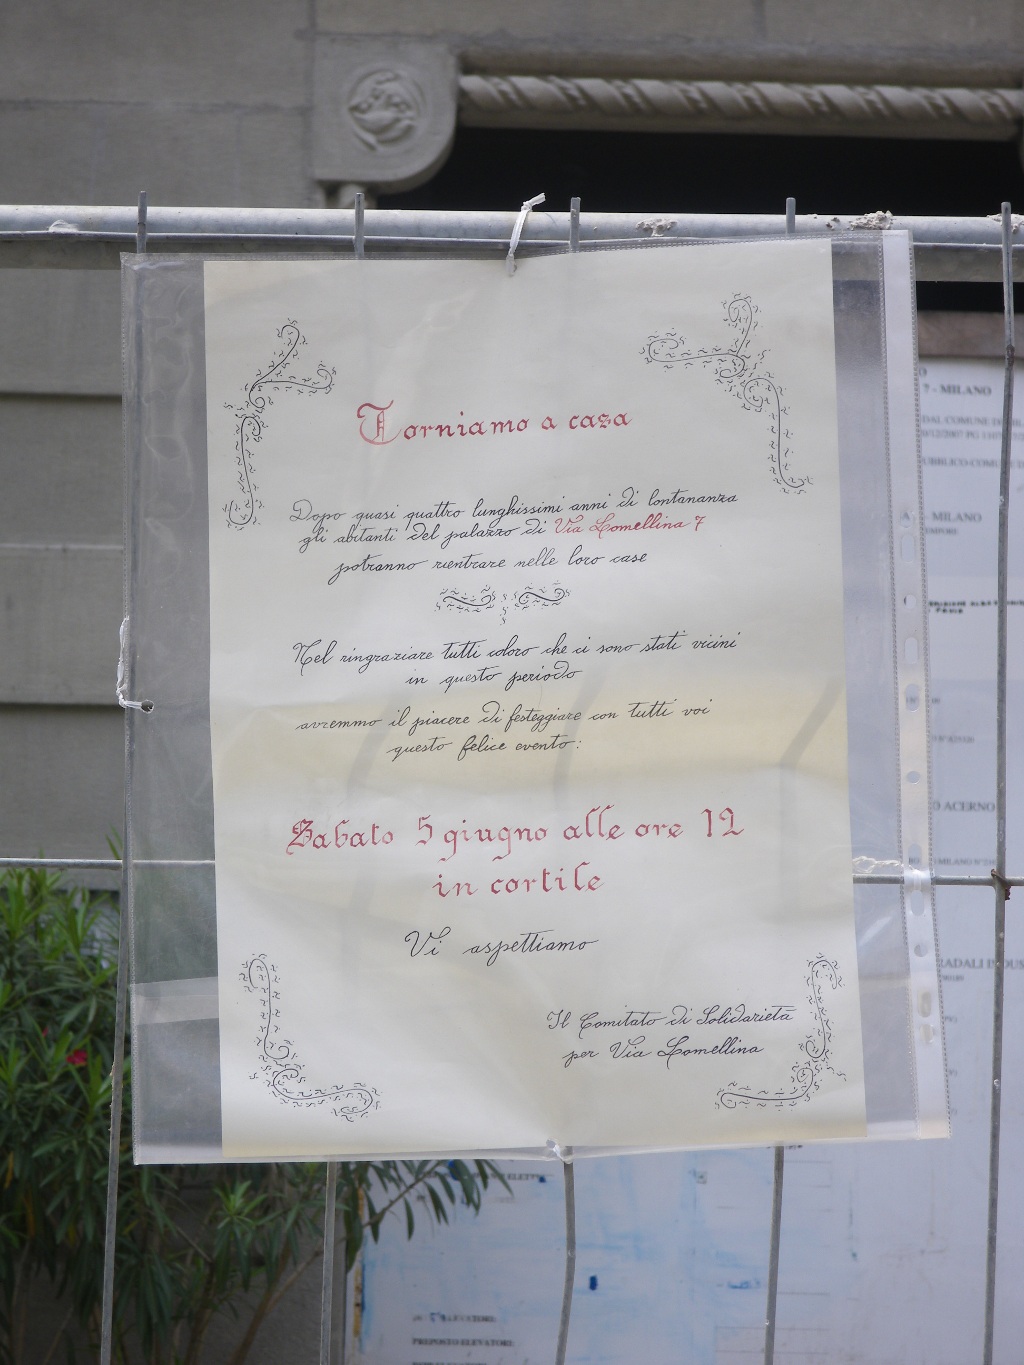 Torniamo a casa
Dopo quasi quattro lunghissimi anni di lontananza
gli abitanti del palazzo di Via Lomellina 7
potranno rientrare nelle loro case
Nel ringraziare tutti coloro che ci sono stati vicini
in questo periodo
avremmo il piacere di festeggiare con tutti voi
questo felice evento:
Sabato 5 giugno alle ore 12
in cortile
Vi aspettiamo
Il Comitato di Solidarietà
per Via Lomellina
7 - MILANO
DAL COMUNE DI
- MILANO
ACERNO
MILANO